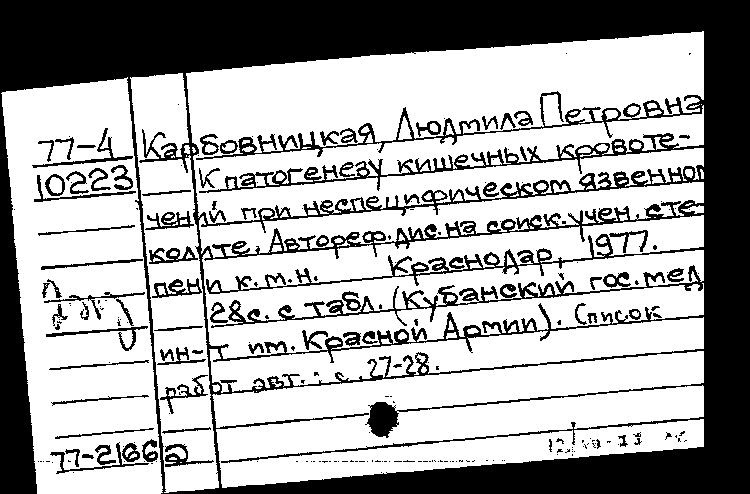 77-4 Карбовницкая, Людмила Петровна
10223 К патогенезу кишечных кровоте-
чений при неспецифическом язвенном
колите. Автореф. дис. на соиск. учен. сте-
пени к.м.н. Краснодар, 1977.
28с. с табл. (Кубанский гос. мед
ин-т им. Красной Армии). Список
работ авт.: с. 27-28.
77-21662